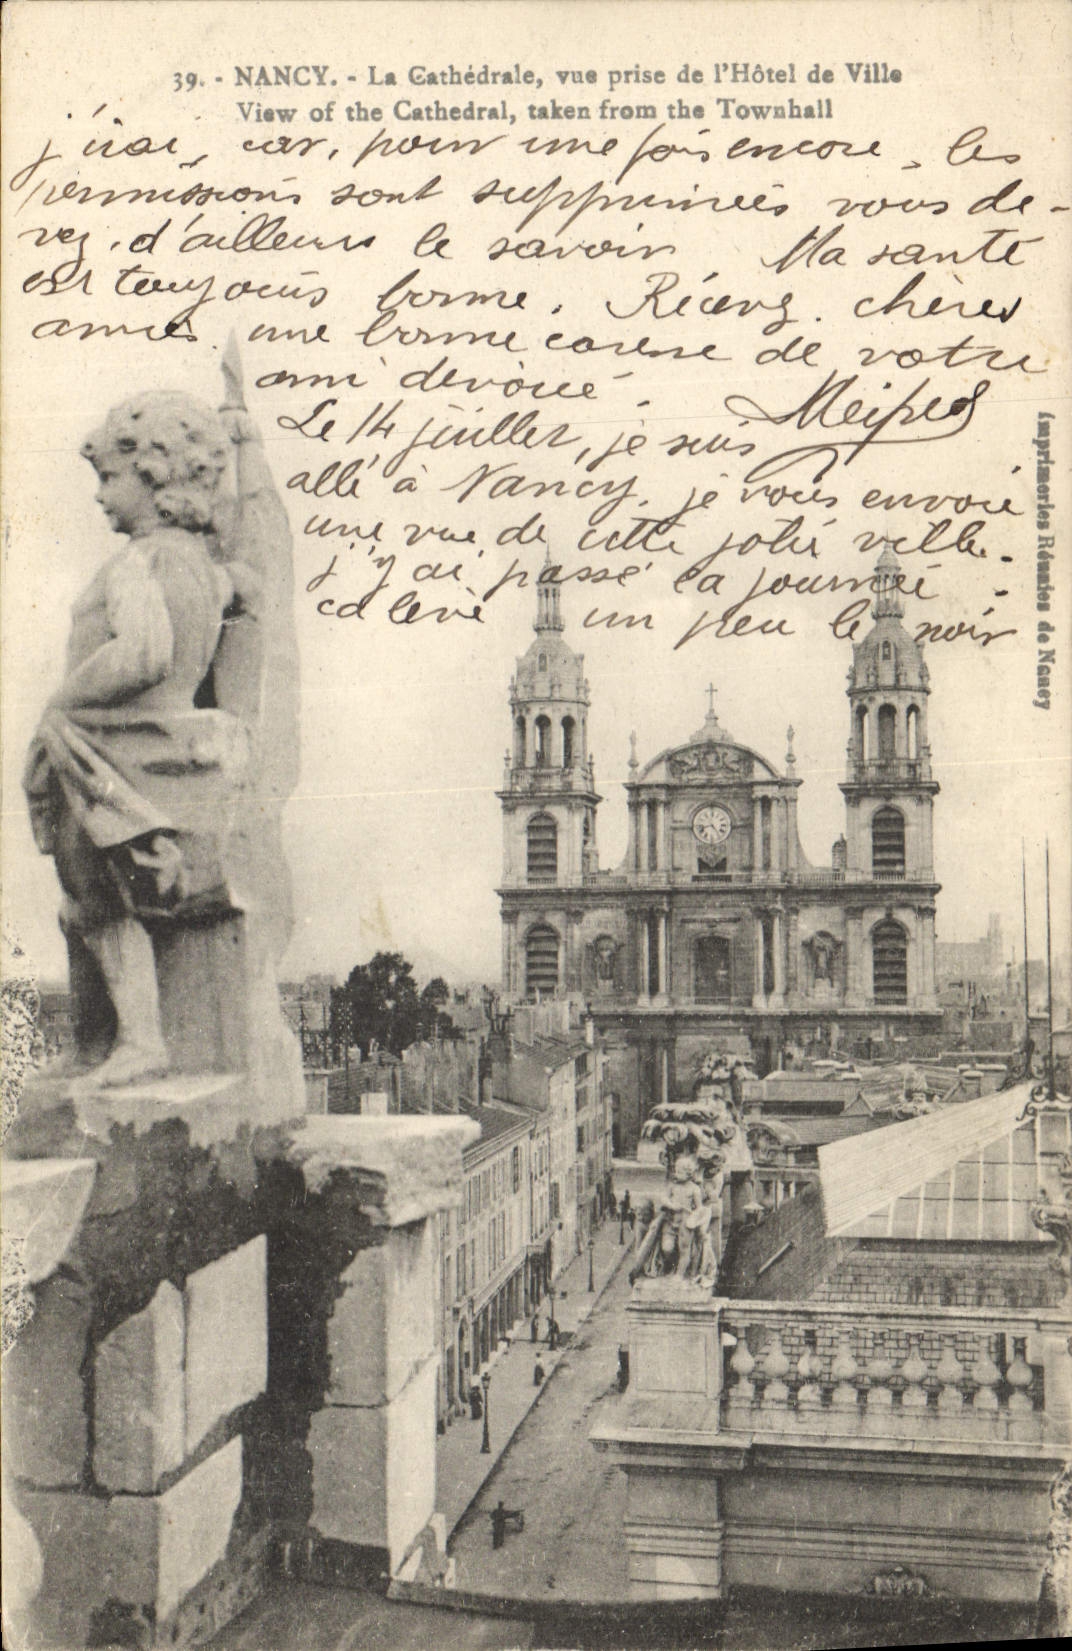 39. - NANCY. - La Cathédrale, vue prise de l'Hôtel de Ville
View of the Cathedral, taken from the Townhall
j'irai, car, pour une fois encore, les
permissions sont supprimées vous de-
vez, d'ailleurs le savoir Ma santé
est toujours bonne. Recevez. chères
amies. une bonne caresse de votre
ami dévoué.
Le 14 juillet, je suis
allé à Nancy, je vous envoie
une vue de cette jolie ville.
j'y ai passé la journée.
ca lève un peu le noir
Imprimeries Réunies de Nancy